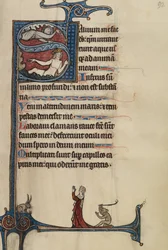 Saluum me fac
deus: qm intraue
runt aque us
q ad animam
meam
Infixus sum
in limo profundi: et non est substan
tia
Veni in altitudinem maris: et tem
pestas demersit me
Laboraui clamans rauce facte sunt
fauces mee: defecerunt oculi mei
dum spero in deum meum
Multiplicati sunt super capillos ca
pitis mei: qui oderunt me gratis